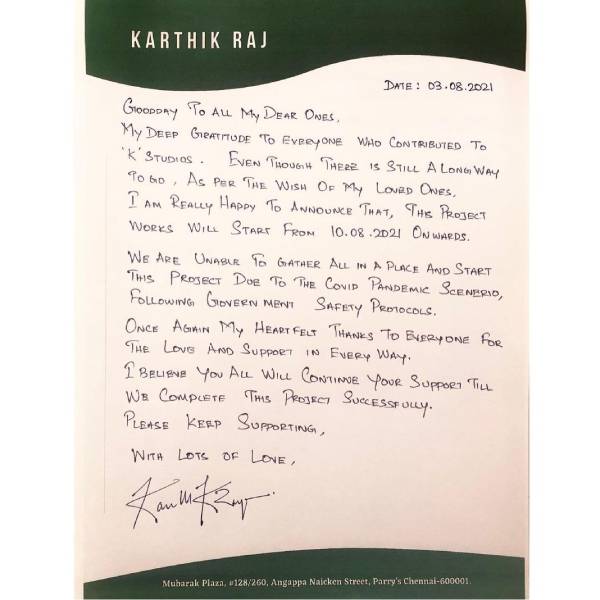 KARTHIK RAJ
DATE: 03.08.2021
GOODDAY TO ALL MY DEAR ONES,
MY DEEP GRATITUDE TO EVERYONE WHO CONTRIBUTED TO
'K' STUDIOS. EVEN THOUGH THERE IS STILL A LONG WAY
TO GO, AS PER THE WISH OF MY LOVED ONES,
I AM REALLY HAPPY TO ANNOUNCE THAT, THIS PROJECT
WORKS WILL START FROM 10.08.2021 ONWARDS.
WE ARE UNABLE TO GATHER ALL IN A PLACE AND START
THIS PROJECT DUE TO THE COVID PANDEMIC SCENERIO,
FOLLOWING GOVERNMENT SAFETY PROTOCOLS.
ONCE AGAIN MY HEARTFELT THANKS TO EVERYONE FOR
THE LOVE AND SUPPORT IN EVERY WAY.
I BELIEVE YOU ALL WILL CONTINUE YOUR SUPPORT TILL
WE COMPLETE THIS PROJECT SUCCESSFULLY.
PLEASE KEEP SUPPORTING,
WITH LOTS OF LOVE,
Mubarak Plaza, #128/260, Angappa Naicken Street, Parry's Chennai-600001.